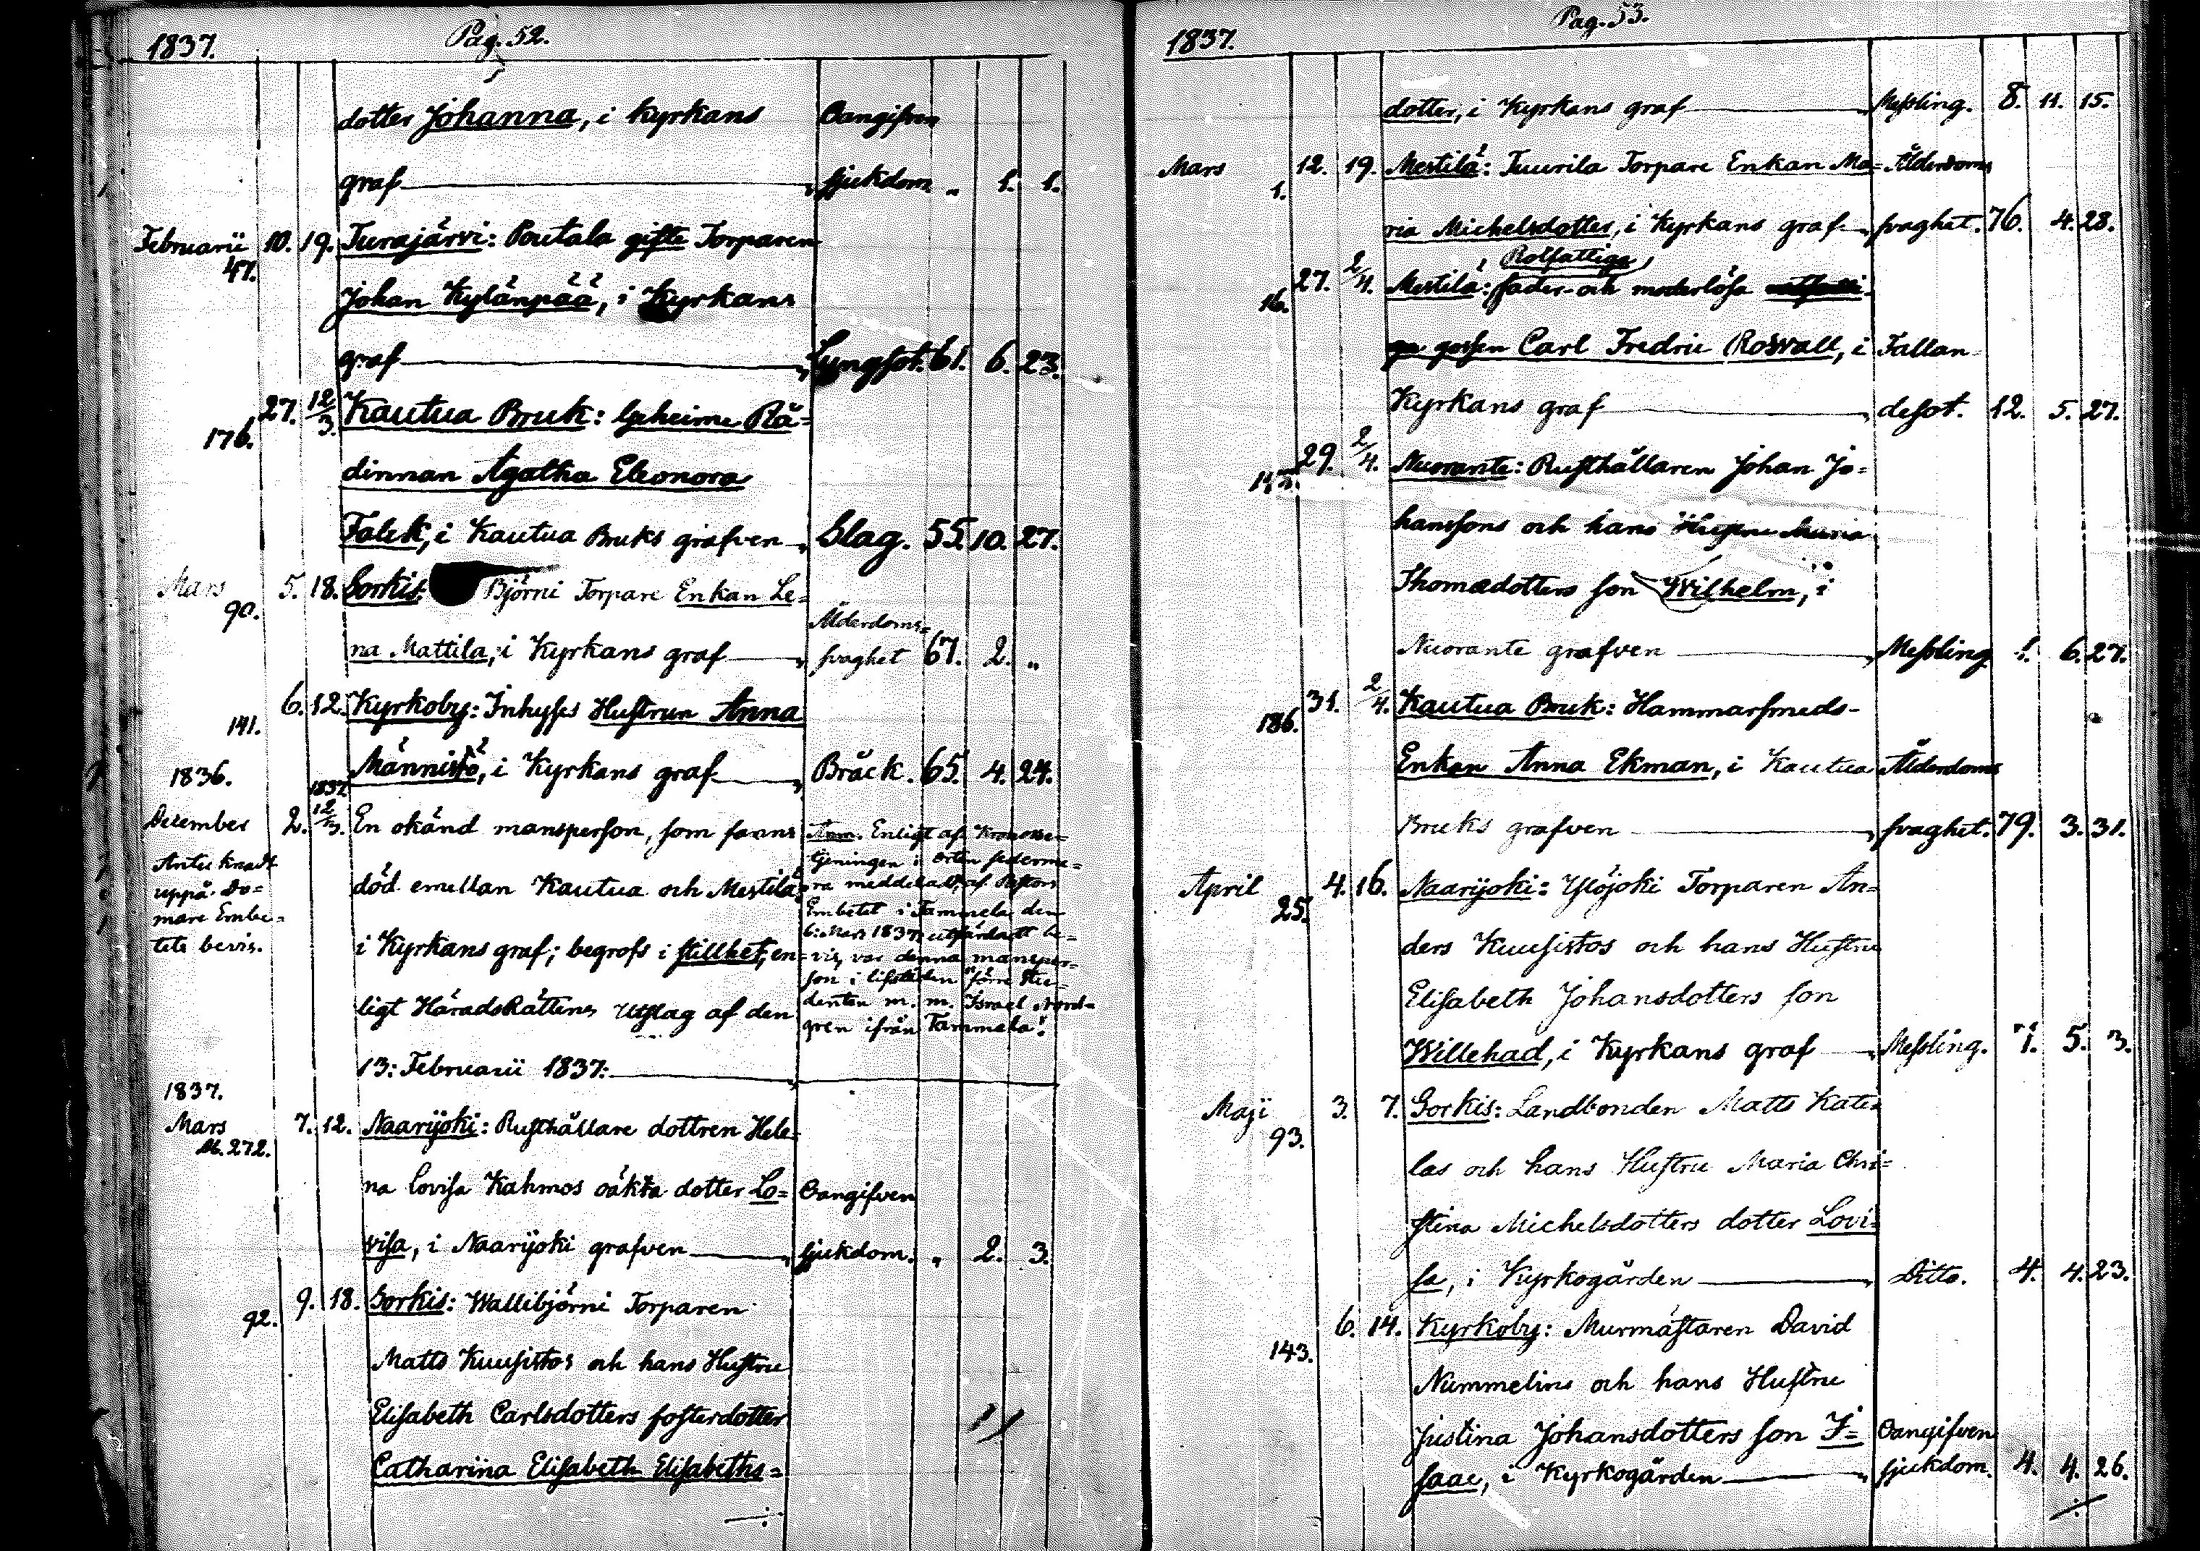 1837. Pag. 52.
dotter Johanna, i Kyrkans Oangifven
graf sjukdom „ 1. 1.
Februarii 10. 19. Turajärvi: Poutala gifte Torparen
47. Johan Kylänpää, i Kyrkans
graf Lungsot. 61. 6. 23.
27. 12/3. Kautua Bruk: Geheime Rå=
176.
dinnan Agatha Eleonora
Falck, i Kautua Bruks grafven Slag. 55. 10. 27.
Mars 5. 18. Sorkis: Björni Torpare Enkan Le=
90. Ålderdoms=
na Mattila, i Kyrkans graf svaghet 67. 2. „
6. 12. Kyrkoby: Inhyses Hustrun Anna
141.
1836. Männistö, i Kyrkans graf Bråck. 65. 4. 24.
1837
December 2. 12/3. En okänd mansperson, som fanns
Antecknadt
uppå Do=
mare Embe=
tets bevis.
död emellan Kautua och Mestilä,
i Kyrkans graf; begrofs i stillhet, en=
ligt HäradsRättens Utslag af den
13: Februarii 1837:
Anm. Enligt af Kronobe=
tjeningen i orten sederme=
ra meddeladt, af Pastors
Embetet i Tammela den
6: Mars 1837 utfärdadt be=
vis, var denna mansper=
son i lifstiden "förre Stu=
denten m. m. Israel Nord=
gren ifrån Tammela".
1837.
Mars 7. 12. Naarijoki: Rusthållare dottren Hele=
M. 272.
na Lovisa Kahmos oäkta dotter Lo= Oangifven
visa, i Naarijoki grafven sjukdom. „ 2. 3.
9. 18. Sorkis: Wallibjörni Torparen
92.
Matts Kuusistos och hans Hustru
Elisabeth Carlsdotters fosterdotter
Catharina Elisabeth Elisabeths=
1837. Pag. 53.
dotter, i Kyrkans graf Messling. 8. 11. 15.
Mars 12. 19. Mestilä: Tuurila Torpare Enkan Ma= Ålderdoms
1.
ria Michelsdotter, i Kyrkans graf svaghet. 76. 4. 28.
Rotfattiga
27. 2/4. Mestilä: fader- och moderlösa
16.
gossen Carl Fredric Rosvall, i Fallan=
Kyrkans graf desot. 12. 5. 27.
29. 2/4. Nuorante: Rusthållaren Johan Jo=
hanssons och hans Hustru Maria
Thomædotters son Wilhelm, i
Nuorante grafven Messling 1. 6. 27.
31. 2/4. Kautua Bruk: Hammarsmeds-
186.
Enkan Anna Ekman, i Kautua Ålderdoms
Bruks grafven svaghet. 79. 3. 31.
April 4. 16. Naarijoki: Ylöjoki Torparen An=
25.
ders Kuusistos och hans Hustru
Elisabeth Johansdotters son
Willehad, i Kyrkans graf Messling. 7. 5. 3.
Maji 3. 7. Sorkis: Landbonden Matts Kati=
93.
las och hans Hustru Maria Chri=
stina Michelsdotters dotter Lovi=
sa, i Kyrkogården Ditto. 4. 4. 23.
6. 14. Kyrkoby: Murmästaren David
143.
Nummelins och hans Hustru
Justina Johansdotters son I= Oangifven
saac, i Kyrkogården sjukdom. 4. 4. 26.